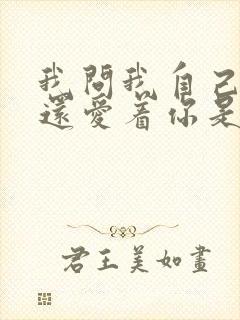 我問我自己
還愛着你是
君王美如畫